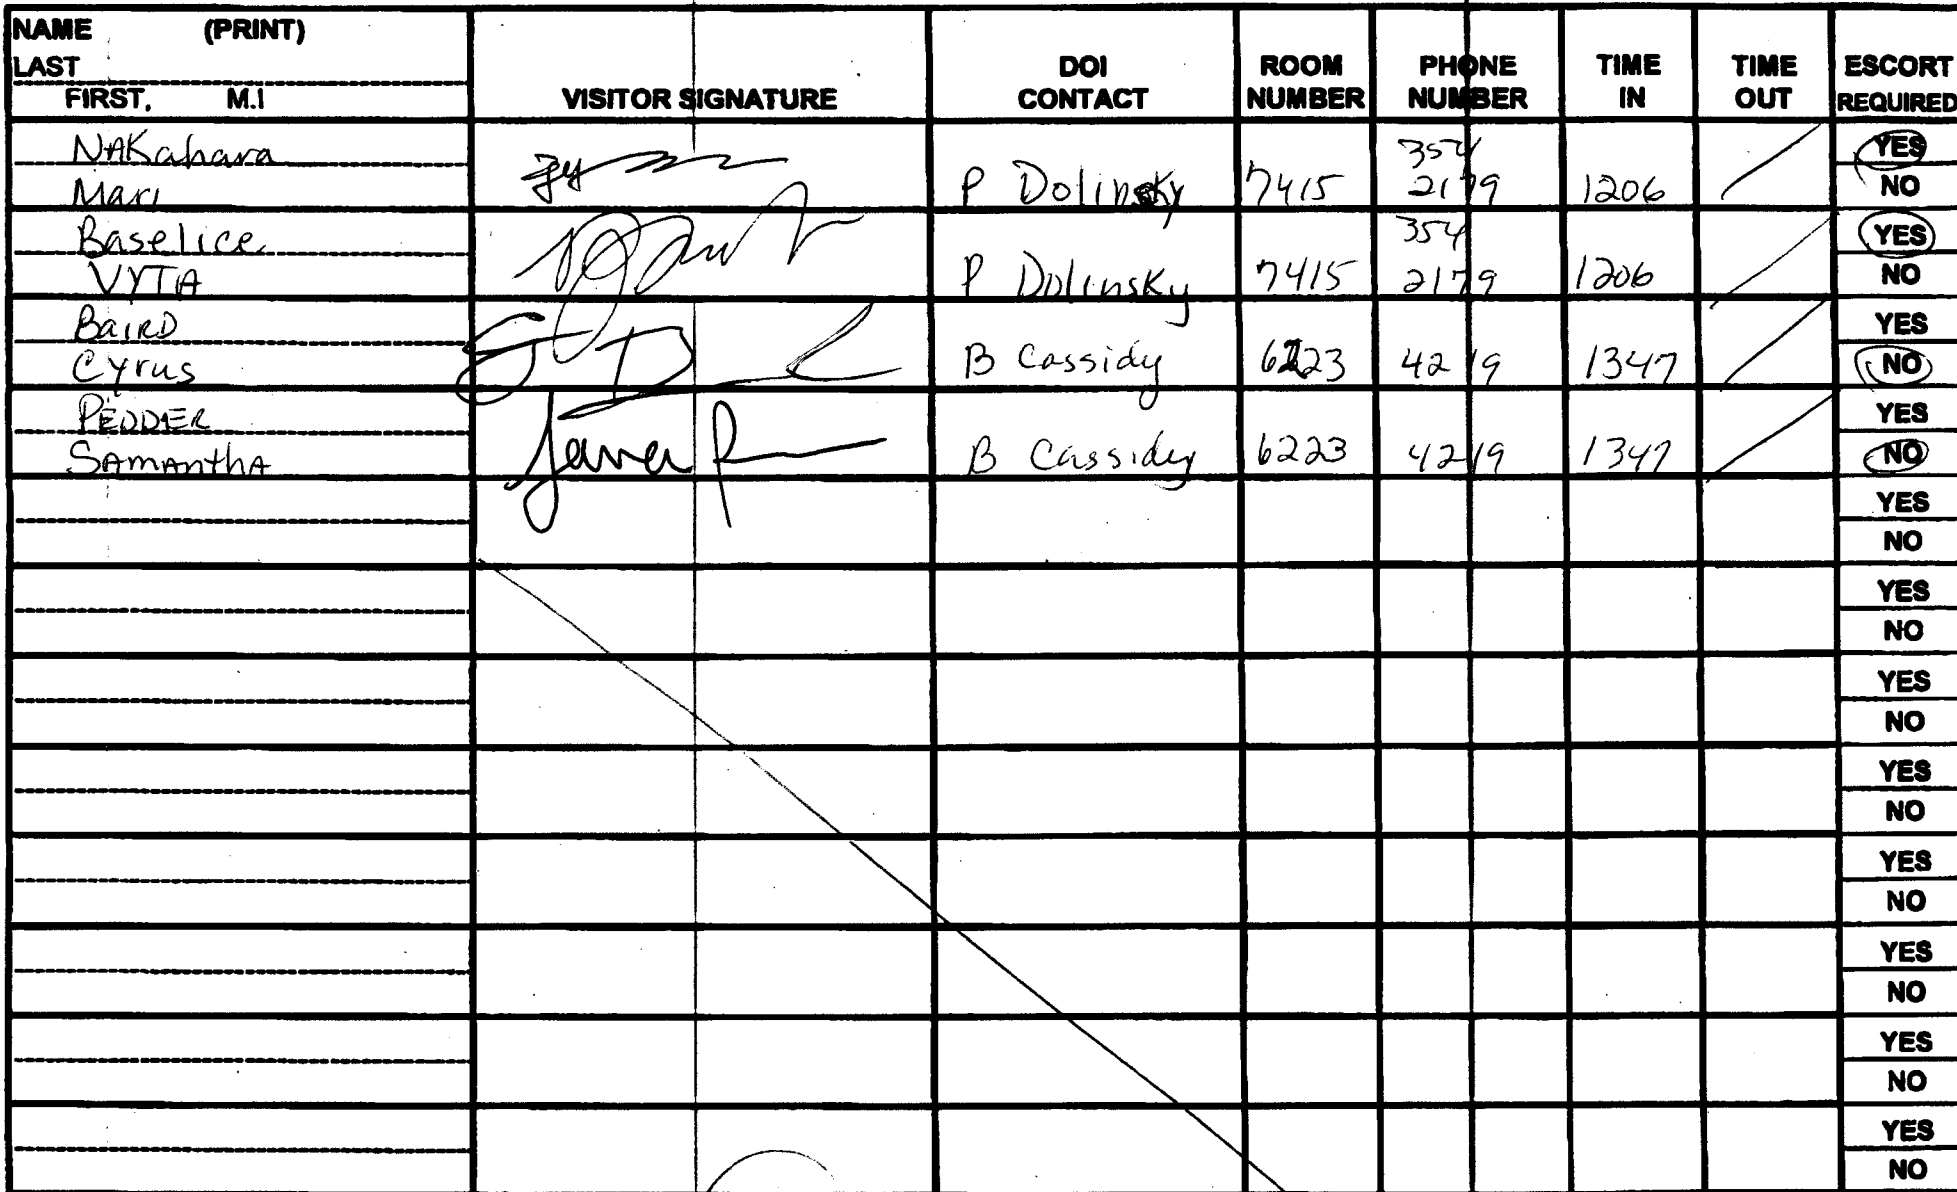 NAME (PRINT)
LAST
FIRST, M.I
VISITOR SIGNATURE
DOI CONTACT
ROOM NUMBER
PHONE NUMBER
TIME IN
TIME OUT
ESCORT REQUIRED
NAKahara
Mari
P Dolinsky 7415 354 2179 1206 YES
NO
Baselice
VYTA
P Dolinsky 7415 354 2179 1206 YES
NO
BaiRD
Cyrus
B Cassidy 6223 4219 1347 YES
NO
PEDDER
SAmanthA
B Cassidy 6223 4219 1347 YES
NO
YES
NO
YES
NO
YES
NO
YES
NO
YES
NO
YES
NO
YES
NO
YES
NO